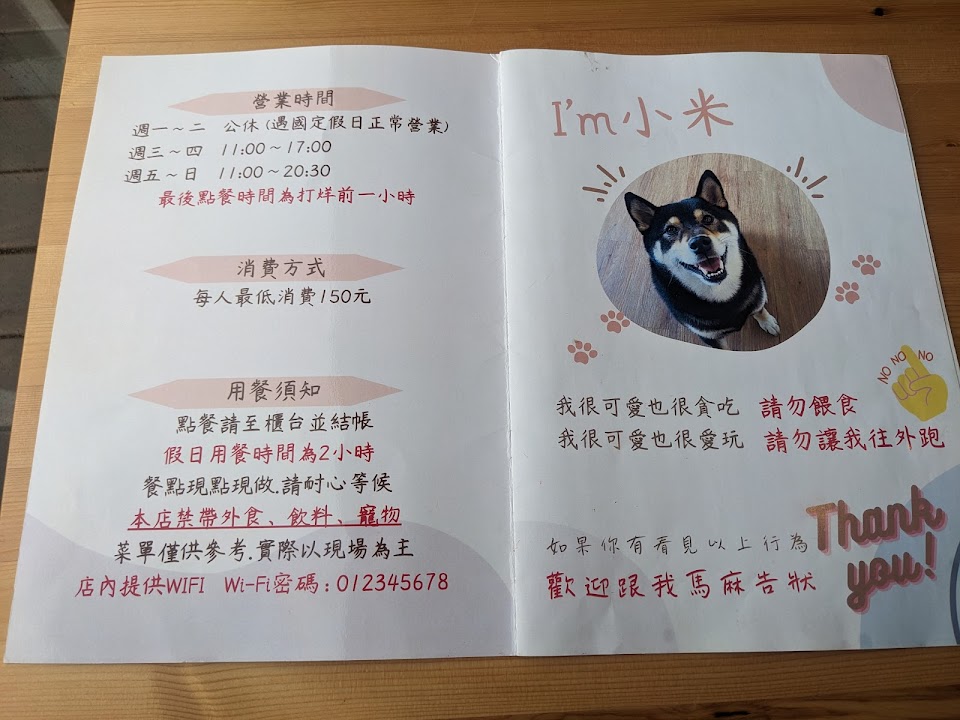 營業時間
週一～二 公休 (遇國定假日正常營業)
週三～四 11:00～17:00
週五～日 11:00～20:30
最後點餐時間為打烊前一小時
消費方式
每人最低消費150元
用餐須知
點餐請至櫃台並結帳
假日用餐時間為2小時
餐點現點現做.請耐心等候
本店禁帶外食、飲料、寵物
菜單僅供參考.實際以現場為主
店內提供WIFI Wi-Fi密碼：012345678
I'm小米
NO NO NO
我很可愛也很貪吃 請勿餵食
我很可愛也很愛玩 請勿讓我往外跑
如果你有看見以上行為
歡迎跟我馬麻告狀
Thank
you!